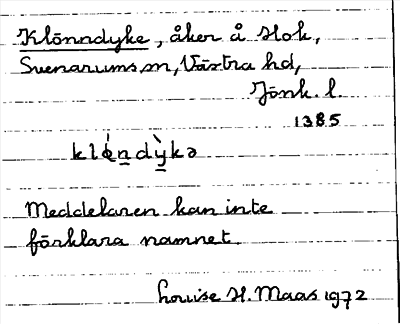 Klönndyke, åker å Stok,
Svenarums sn, Västra hd,
Jönk. l.
1385
klǿn̲dỳ̲kə
Meddelaren kan inte
förklara namnet.
Louise H. Maas 1972